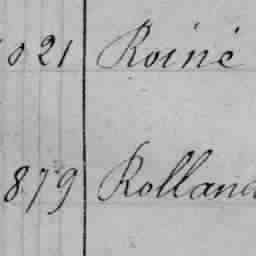 021 Roiné
879 Rolland